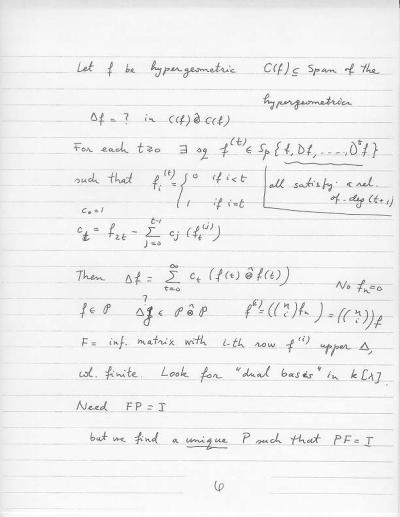 Let f be hypergeometric C(f) ⊆ Span of the
hypergeometrics
Δf = ? in C(f) ⊗̂ C(f)
For each t≥0 ∃ sq f^(t) ∈ Sp{f, Df, ...., D^t f}
such that f_i^(t) = { 0 if i<t
1 if i=t
all satisfy a rel.
of deg (t+1)
c_0=1
c_t = f_2t - Σ_{j=0}^{t-1} c_j (f_t^(j))^2
Then Δf = Σ_{t=0}^∞ c_t (f(t) ⊗̂ f(t))
No f_n=0
f ∈ P Δf ∈ P ⊗̂ P f^(i) = ((n i) f_n) = ((n i)) f
?
F = inf. matrix with i-th row f^(i) upper Δ,
col. finite. Look for "dual basis" in k[x].
Need FP = I
but we find a unique P such that PF = I
6